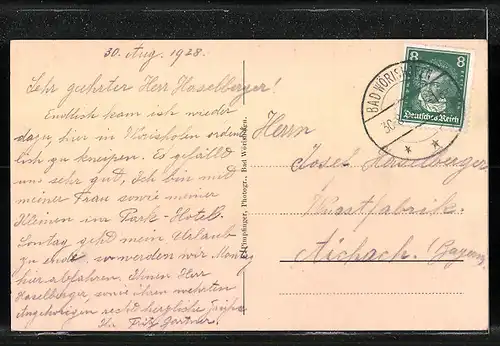 30. Aug. 1928.
Sehr geehrter Herr Haselberger!
Endlich kam ich wieder
dazu, hier in Wörishofen ordent
lich zu kneipen. Es gefällt
uns sehr gut, Ich bin mit
meiner Frau sowie meiner
Kleinen im Park-Hotel.
Sontag geht mein Urlaub
zu ende, so werden wir Montag
hier abfahren. Ihnen Herr
Haselberger, sowie ihren
Angehörigen recht herzliche Grüße
Ihr Fritz
Photogr., Bad Wörishofen.
BAD WÖRISHOFEN
30.
8 8
Deutsches Reich
Herrn
Josef Haselberger
Aichach. (Bayern)